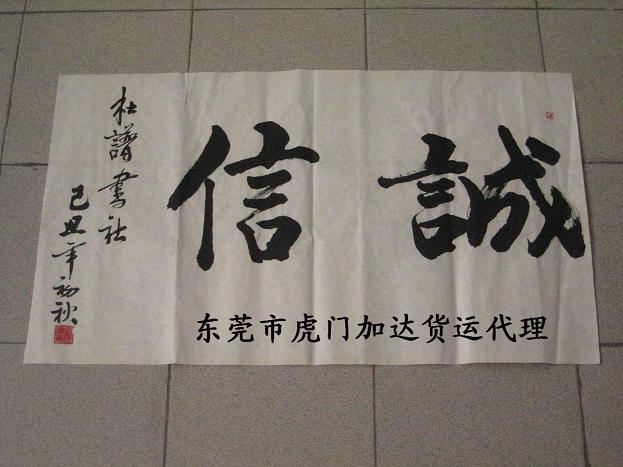 誠信
己丑年初秋
杜譜書社
东莞市虎门加达货运代理